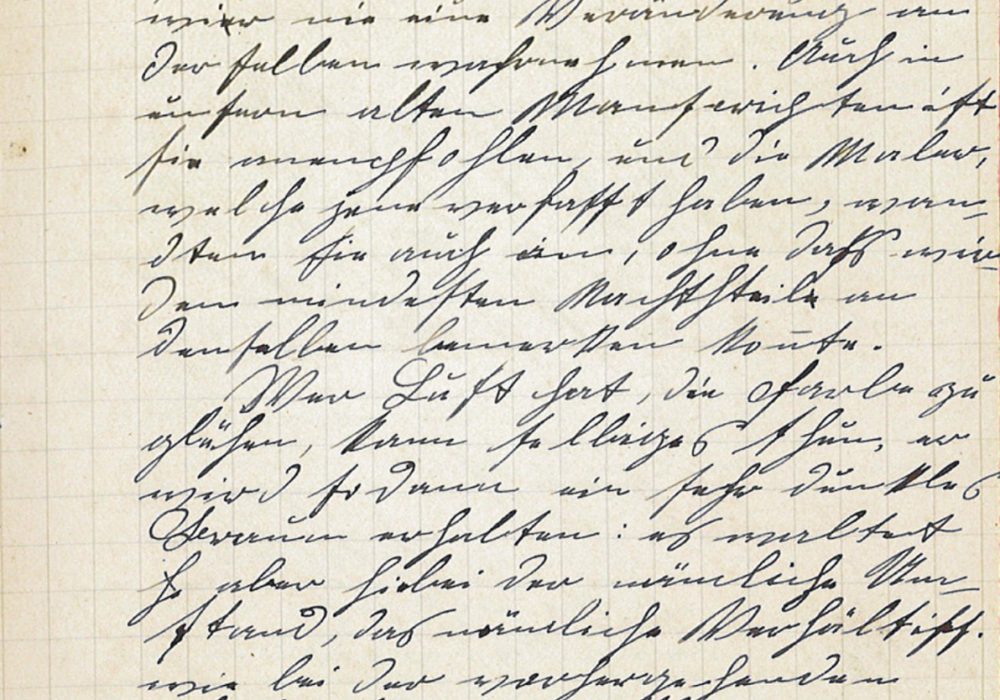 wier nie eine Veränderung an
derselben wahrnehmen. Auch in
unsern alten Manuscrichten ist
sie anempfohlen, und die Maler,
welche jene verfasst haben, wan-
dten sie auch an, ohne dass wir
den mindesten Nachtheile an
denselben bemerken konnte.
Wer Lust hat, die Farbe zu
glühen, kann selbiges thun, er
wird sodann ein sehr dunkles
Braun erhalten: es waltet
aber hiebei der nämliche Um-
stand, das nämliche Verhältniss.
wie bei der vorhergehenden